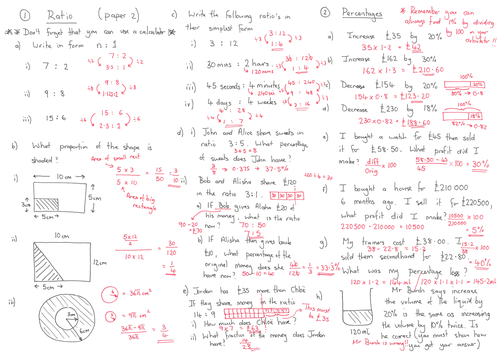 ① Ratio (paper 2)
** Don't forget that you can use a calculator **
a) Write in form n : 1
i) 7 : 2
7 : 2
3.5 : 1
ii) 9 : 8
9 : 8
1.125 : 1
iii) 15 : 6
15 : 6
2.5 : 1
b) What proportion of the shape is shaded?
Area of small rect
i)
10 cm
5cm
3cm
5cm
5 x 3
5 x 10
= 15
50
= 3
10
Area of big rectangle
ii)
10 cm
12cm
5cm
5x12
2
10 x 12
= 30
120
= 1
4
iii)
6cm
= 36π cm²
c) Write the following ratio's in their simplest form
i) 3 : 12
3 : 12
1 : 4
ii) 30 mins : 2 hours
120 mins
30 : 120
1 : 4
iii) 45 seconds : 4 minutes
iv) 4 days : 4 weeks
1 : 7
d) i) John and Alice share sweets in ratio 3 : 5. What percentage of sweets does John have?
3+5=8
3/8 → 0.375 → 37.5%
ii) Bob and Alisha share £120 in the ratio 3 : 1.
a) If Bob gives Alisha £20 of his money, what is the ratio now?
70 : 50
7 : 5
b) If Alisha then gives back £10, what percentage of the original money does she have now?
= 33.3%
e) Jordan has £35 more than Chloe
If they share money in the ratio 16 : 9
i) How much does Chloe have?
ii) What fraction of the money does Jordan have?
③ Percentages
* Remember you can always find 1% by dividing by 100 in your calculator!!
a) Increase £35 by 20%
35 x 1.2 = £42
b) Increase £162 by 30%
162 x 1.3 = £210.60
c) Decrease £154 by 20%
154 x 0.8 = £123.20
100%
80% → 0.8
20%
d) Decrease £230 by 18%
230 x 0.82 = £188.60
100%
82% → 0.82
18%
e) I bought a watch for £45 then sold it for £58.50. What profit did I make?
diff
Orig
x 100
58.50 - 45
45
x 100 = 30%
f) I bought a house for £210 000 6 months ago. I sell it for £220500, what profit did I make?
220500 - 210000
= 5%
g) My trainers cost £38.00. I sold them secondhand for £22.80. What was my percentage loss?
= 40%
h)
120 ml
Mr Bunb says increasing the volume of the liquid by 20% is the same as increasing the volume by 10% twice. Is he correct? (You must show how you get your answer)